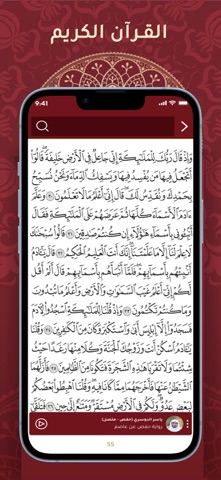 القرآن الكريم
9:41
وَإِذْ قَالَ رَبُّكَ لِلْمَلَٰٓئِكَةِ إِنِّي جَاعِلٌ فِي ٱلْأَرْضِ خَلِيفَةً قَالُوٓا۟
أَتَجْعَلُ فِيهَا مَن يُفْسِدُ فِيهَا وَيَسْفِكُ ٱلدِّمَآءَ وَنَحْنُ نُسَبِّحُ
بِحَمْدِكَ وَنُقَدِّسُ لَكَ قَالَ إِنِّيٓ أَعْلَمُ مَا لَا تَعْلَمُونَ ٣٠ وَعَلَّمَ
ءَادَمَ ٱلْأَسْمَآءَ كُلَّهَا ثُمَّ عَرَضَهُمْ عَلَى ٱلْمَلَٰٓئِكَةِ فَقَالَ
أَنۢبِـُٔونِي بِأَسْمَآءِ هَٰٓؤُلَآءِ إِن كُنتُمْ صَٰدِقِينَ ٣١ قَالُوا۟ سُبْحَٰنَكَ
لَا عِلْمَ لَنَآ إِلَّا مَا عَلَّمْتَنَآ إِنَّكَ أَنتَ ٱلْعَلِيمُ ٱلْحَكِيمُ ٣٢ قَالَ يَٰٓـَٔادَمُ
أَنۢبِئْهُم بِأَسْمَآئِهِمْ فَلَمَّآ أَنۢبَأَهُم بِأَسْمَآئِهِمْ قَالَ أَلَمْ أَقُل
لَّكُمْ إِنِّيٓ أَعْلَمُ غَيْبَ ٱلسَّمَٰوَٰتِ وَٱلْأَرْضِ وَأَعْلَمُ مَا تُبْدُونَ
وَمَا كُنتُمْ تَكْتُمُونَ ٣٣ وَإِذْ قُلْنَا لِلْمَلَٰٓئِكَةِ ٱسْجُدُوا۟ لِـَٔادَمَ
فَسَجَدُوٓا۟ إِلَّآ إِبْلِيسَ أَبَىٰ وَٱسْتَكْبَرَ وَكَانَ مِنَ ٱلْكَٰفِرِينَ ٣٤ وَقُلْنَا
يَٰٓـَٔادَمُ ٱسْكُنْ أَنتَ وَزَوْجُكَ ٱلْجَنَّةَ وَكُلَا مِنْهَا رَغَدًا حَيْثُ
شِئْتُمَا وَلَا تَقْرَبَا هَٰذِهِ ٱلشَّجَرَةَ فَتَكُونَا مِنَ ٱلظَّٰلِمِينَ ٣٥ فَأَزَلَّهُمَا
ٱلشَّيْطَٰنُ عَنْهَا فَأَخْرَجَهُمَا مِمَّا كَانَا فِيهِ وَقُلْنَا ٱهْبِطُوا۟ بَعْضُكُمْ
لِبَعْضٍ عَدُوٌّ وَلَكُمْ فِي ٱلْأَرْضِ مُسْتَقَرٌّ وَمَتَٰعٌ إِلَىٰ حِينٍ ٣٦ فَتَلَقَّىٰٓ
ياسر الدوسري (حفص - متصل)
رواية حفص عن عاصم
55